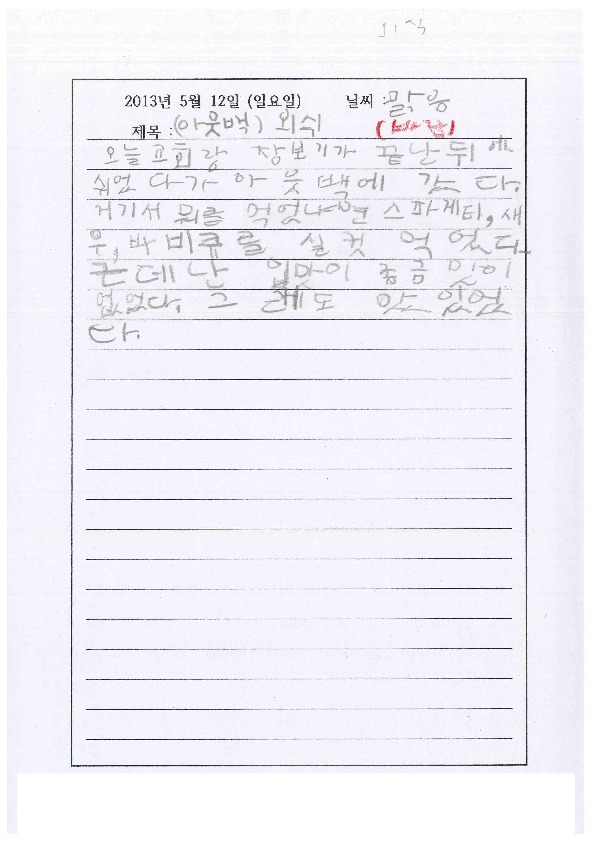 외식
2013년 5월 12일 (일요일) 날씨 : 맑음
제목 : (아웃백) 외식 (바람)
오늘 교회랑 장보기가 끝난뒤에
쉬었다가 아웃백에 갔다.
거기서 뭐를 먹었냐면 스파게티, 새
우, 바비큐를 실컷 먹었다.
근데 난 입맛이 조금 맛이
없었다. 그래도 맛있었
다.